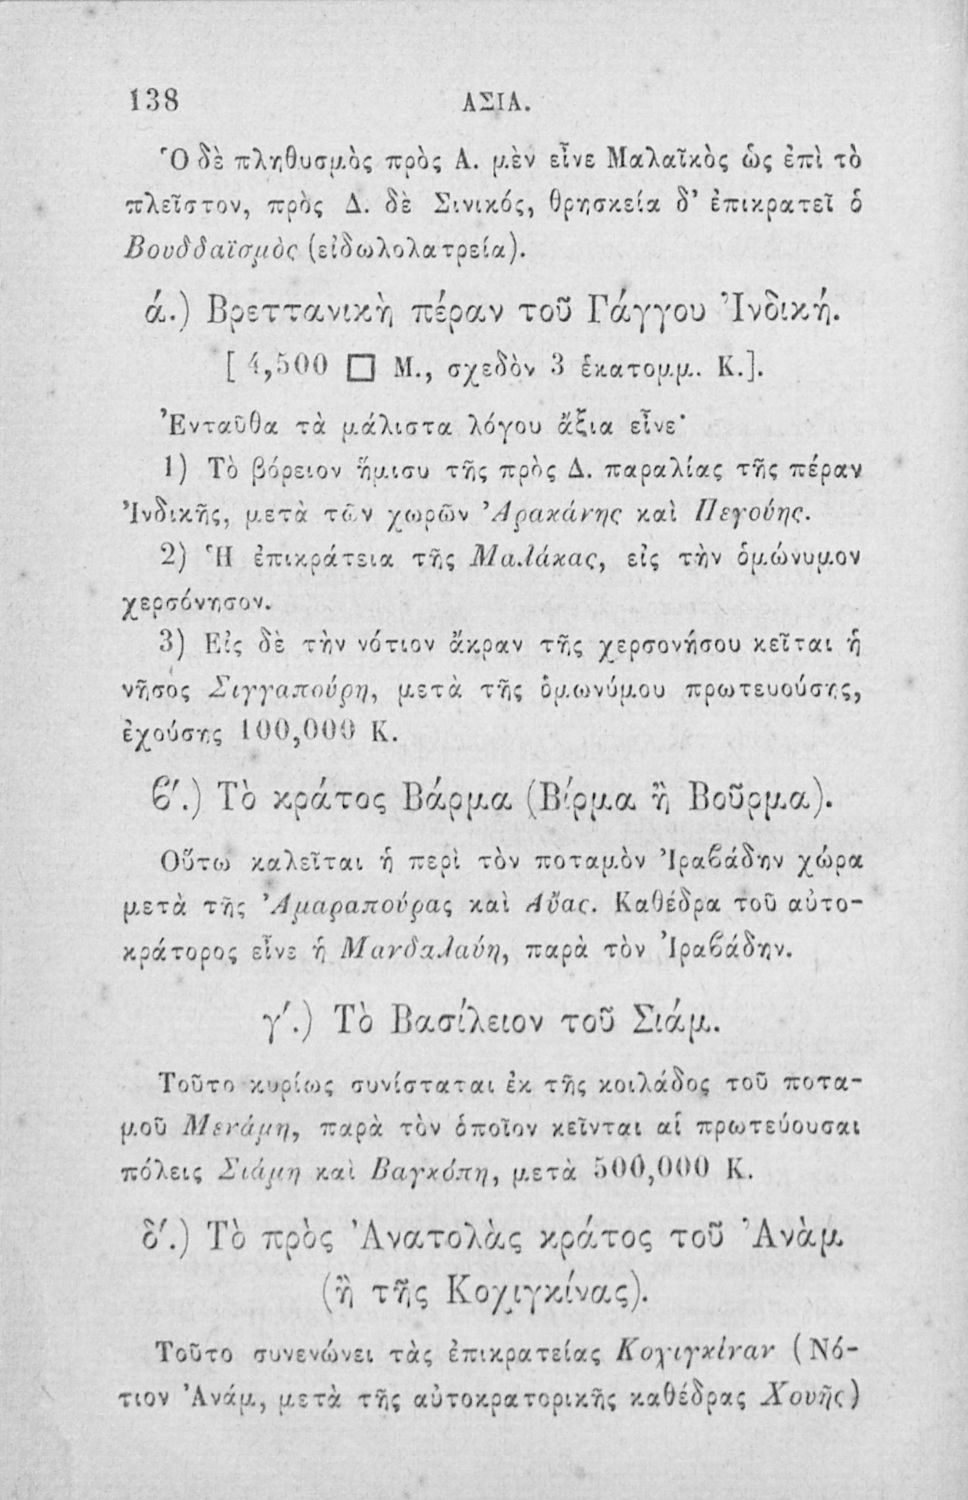 138 ΑΣΙΑ.
Ὁ δὲ πληθυσμὸς πρὸς Α. μὲν εἶνε Μαλαϊκὸς ὡς ἐπὶ τὸ
πλεῖστον, πρὸς Δ. δὲ Σινικός, θρησκεία δ’ ἐπικρατεῖ ὁ
Βουδδαϊσμὸς (εἰδωλολατρεία).
ά.) Βρεττανικὴ πέραν τοῦ Γάγγου Ἰνδική.
[4,500 □ Μ., σχεδὸν 3 ἑκατομμ. Κ.].
Ἐνταῦθα τὰ μάλιστα λόγου ἄξια εἶνε·
1) Τὸ βόρειον ἥμισυ τῆς πρὸς Δ. παραλίας τῆς πέραν
Ἰνδικῆς, μετὰ τῶν χωρῶν Ἀρακάνης καὶ Πεγούης.
2) Ἡ ἐπικράτεια τῆς Μαλάκας, εἰς τὴν ὁμώνυμον
χερσόνησον.
3) Εἰς δὲ τὴν νότιον ἄκραν τῆς χερσονήσου κεῖται ἡ
νῆσος Σιγγαπούρη, μετὰ τῆς ὁμωνύμου πρωτευούσης,
ἐχούσης 100,000 Κ.
ϐ′.) Τὸ κράτος Βάρμα (Βίρμα ἢ Βοῦρμα).
Οὕτω καλεῖται ἡ περὶ τὸν ποταμὸν Ἰραϐάδην χώρα
μετὰ τῆς Ἀμαραπούρας καὶ Αὔας. Καθέδρα τοῦ αὐτο-
κράτορος εἶνε ἡ Μανδαλαύη, παρὰ τὸν Ἰραϐάδην.
γ′.) Τὸ Βασίλειον τοῦ Σιάμ.
Τοῦτο κυρίως συνίσταται ἐκ τῆς κοιλάδος τοῦ ποτα-
μοῦ Μενάμη, παρὰ τὸν ὁποῖον κεῖνται αἱ πρωτεύουσαι
πόλεις Σιάμη καὶ Βαγκόπη, μετὰ 500,000 Κ.
δ′.) Τὸ πρὸς Ἀνατολὰς κράτος τοῦ Ἀνὰμ
(ἢ τῆς Κοχιγκίνας).
Τοῦτο συνενώνει τὰς ἐπικρατείας Κοχιγκίναν (Νό-
τιον Ἀνάμ, μετὰ τῆς αὐτοκρατορικῆς καθέδρας Χουῆς)